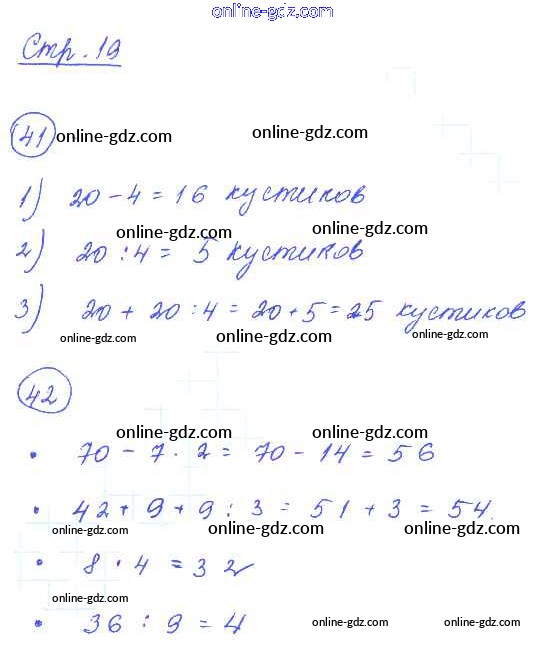 online-gdz.com
Стр. 19
41 online-gdz.com online-gdz.com
1) 20 - 4 = 16 кустиков
online-gdz.com online-gdz.com
2) 20 : 4 = 5 кустиков
3) 20 + 20 : 4 = 20 + 5 = 25 кустиков
online-gdz.com online-gdz.com online-gdz.com
42
online-gdz.com online-gdz.com
• 70 - 7 · 2 = 70 - 14 = 56
• 42 + 9 + 9 : 3 = 51 + 3 = 54
online-gdz.com online-gdz.com online-gdz.com
• 8 · 4 = 32
online-gdz.com online-gdz.com online-gdz.com
• 36 : 9 = 4